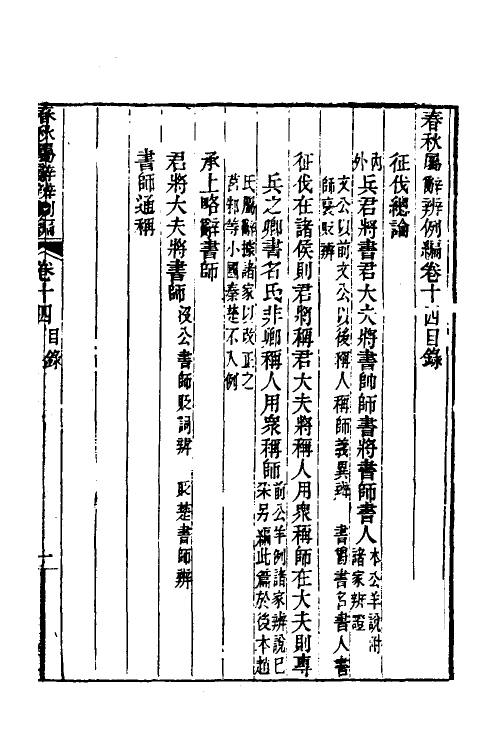 春秋屬辭辨例編卷十四目錄
征伐總論
內外兵君將書君大夫將書帥師書將書師書人本公羊說附諸家辨證
文公以前文公以後稱人稱師義異辨　書爵書名書人書師褒貶辨
征伐在諸侯則君將稱君大夫將稱人用眾稱師在大夫則專
兵之卿書名氏非卿稱人用眾稱師前公羊例諸家辨說已采另編此篇於後本趙
氏屬辭據諸家以改正之
莒邾等小國秦楚不入例
承上略辭書師
君將大夫將書師沒公書師貶詞辨　貶楚書師辨
書師通稱
春秋屬辭辨例編　卷十四目錄　一